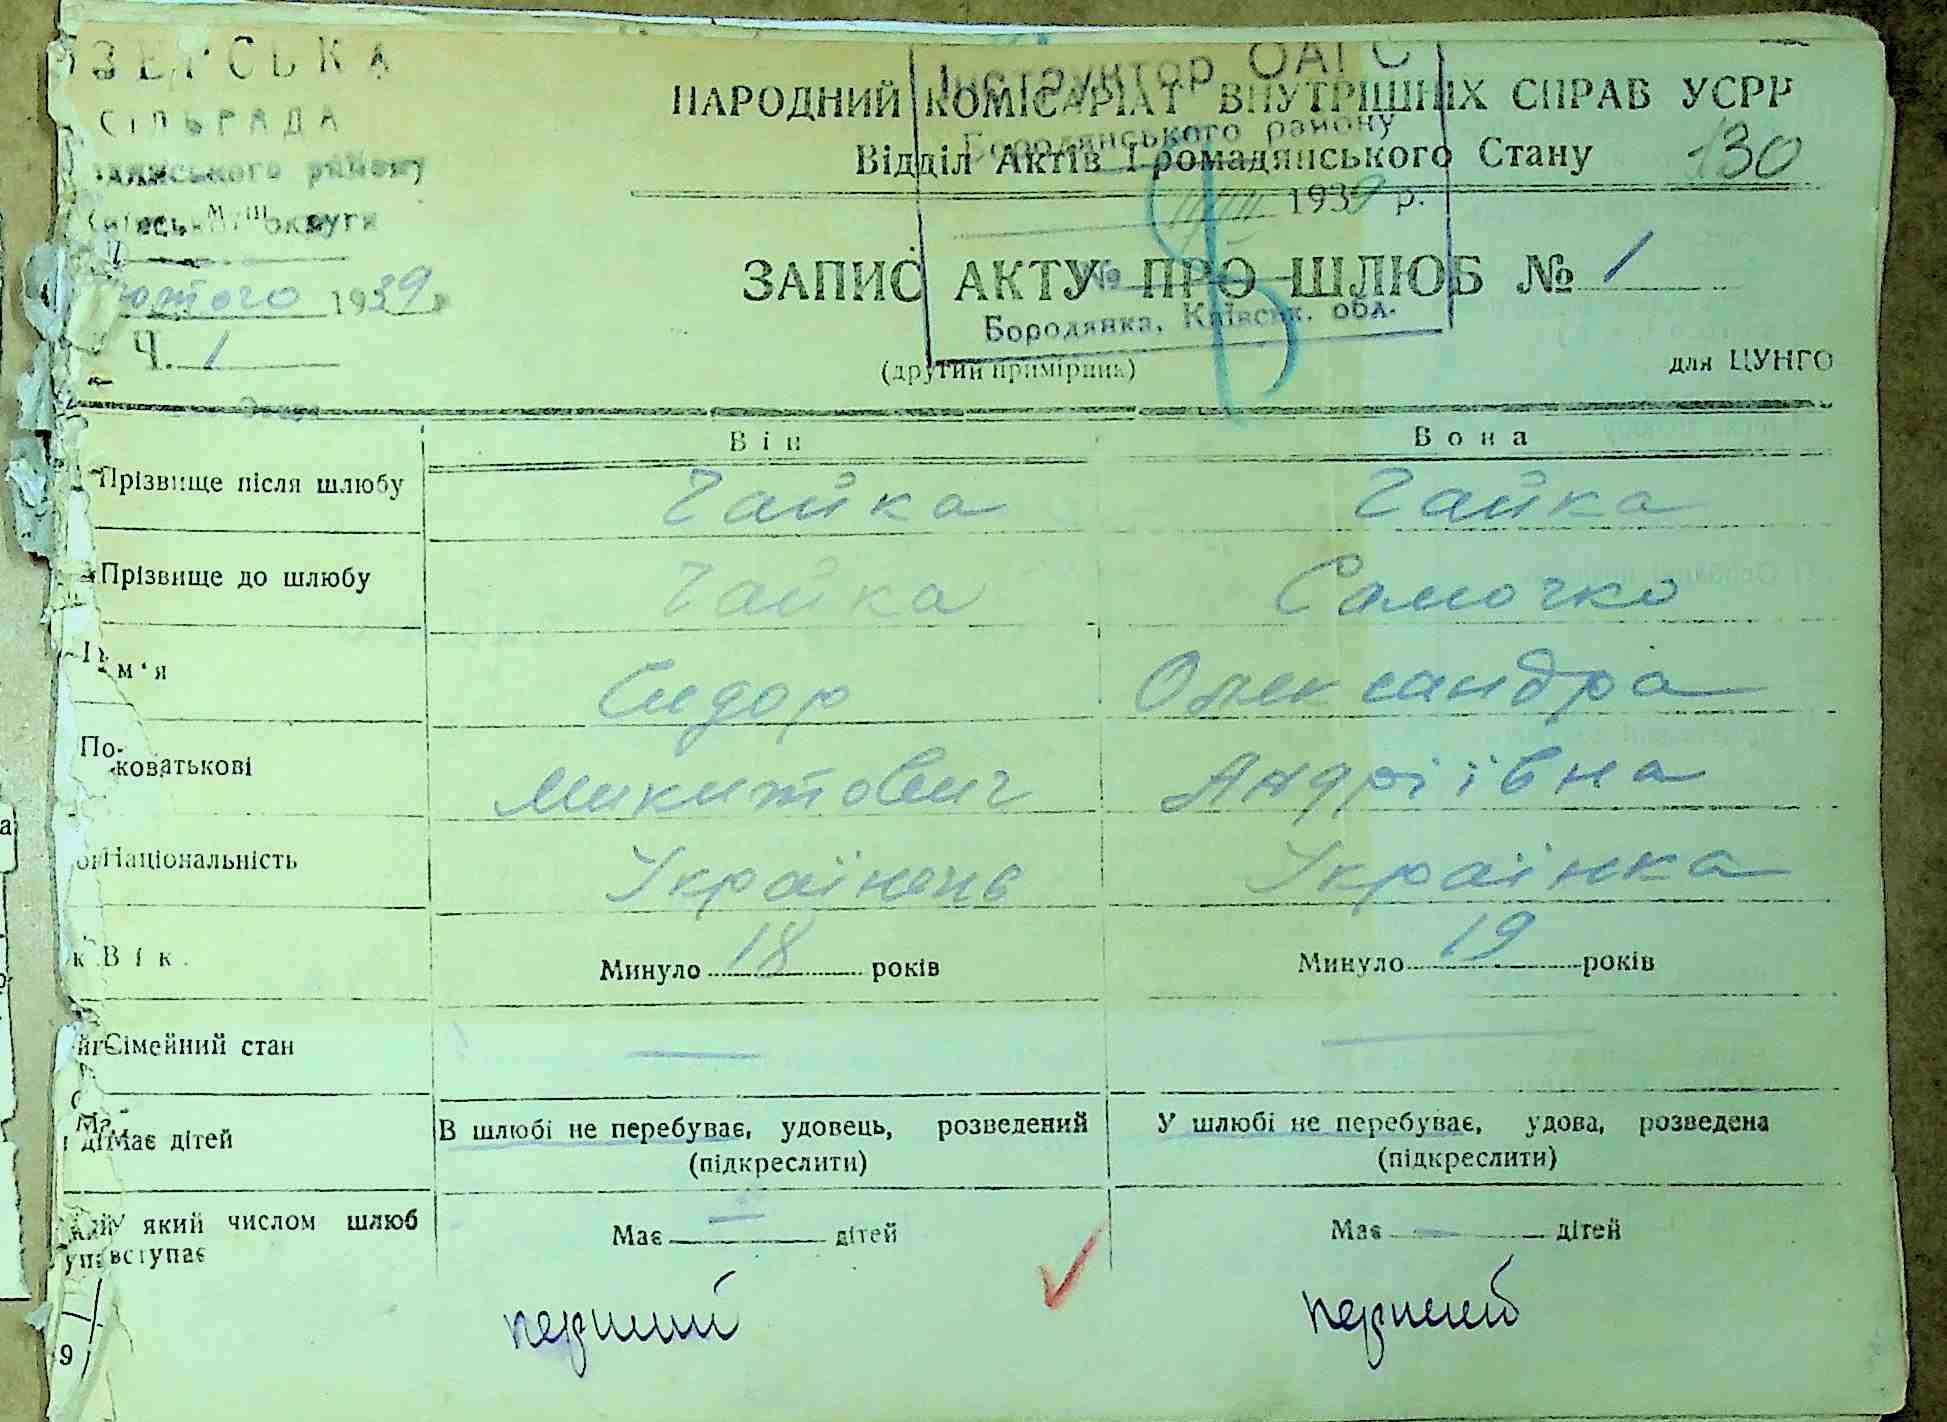 ЗЕРСЬКА
СІЛЬРАДА
району
округи
лютого 1939 р
Ч. 1
Інструктор ОАГС
Бородянського району
1939 р.
№
Бородянка, Київськ. обл.
НАРОДНИЙ КОМІСАРІАТ ВНУТРІШНІХ СПРАВ УСРР
Відділ Актів Громадянського Стану 130
ЗАПИС АКТУ ПРО ШЛЮБ № 1
(другий примірник)
для ЦУНГО
Він Вона
Прізвище після шлюбу Чайка Чайка
Прізвище до шлюбу Чайка Самочко
м'я Сидор Олександра
По-
батькові Микитович Андріївна
Національність Українець Українка
Вік Минуло 18 років Минуло 19 років
Сімейний стан — —
Має дітей В шлюбі не перебуває, удовець, розведений У шлюбі не перебуває, удова, розведена
(підкреслити) (підкреслити)
У який числом шлюб
вступає Має — дітей Має — дітей
перший перший
9